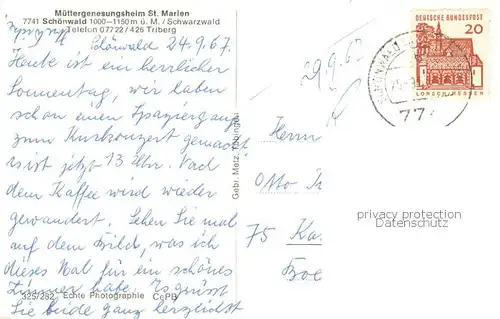 Müttergenesungsheim St. Marien
7741 Schönwald 1000–1150 m ü. M. / Schwarzwald
Telefon 07722 / 425 Triberg
Schönwald 24.9.67.
Heute ist ein herrlicher
Sonnentag, wir haben
schon einen Spaziergang
zum Kurkonzert gemacht
ist jetzt 13 Uhr. Nach
dem Kaffee wird wieder
gewandert. Sehen Sie mal
auf dem Bild, was ich
dieses Mal für ein schönes
Zimmer habe. Es grüsst
Sie beide ganz herzlichst
325/282 Echte Photographie CePB
Gebr. Metz, Tübingen
29.9.67
DEUTSCHE BUNDESPOST
20
LORSCH/HESSEN
SCHÖNWALD
77
Herrn
Otto
75 Ka
privacy protection
Datenschutz